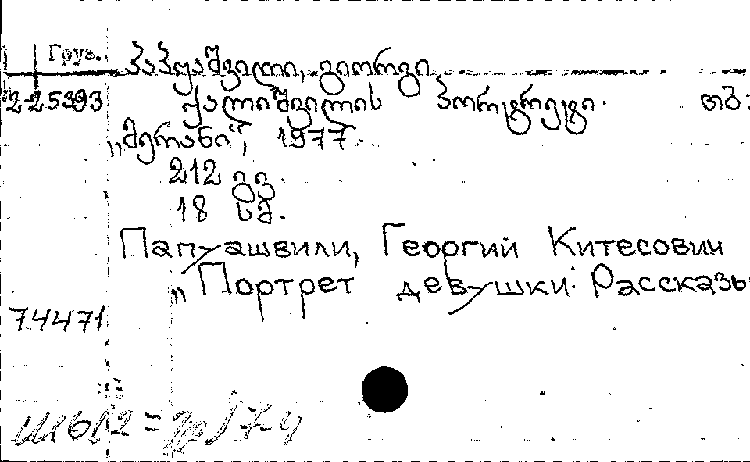 Груз.
პაპუაშვილი, გიორგი
2-25393 ქალიშვილის პორტრეტი. თბ.
„მერანი“, 1977.
212 გვ.
18 სმ.
Папуашвили, Георгий Китесович
„Портрет девушки. Рассказы
74471